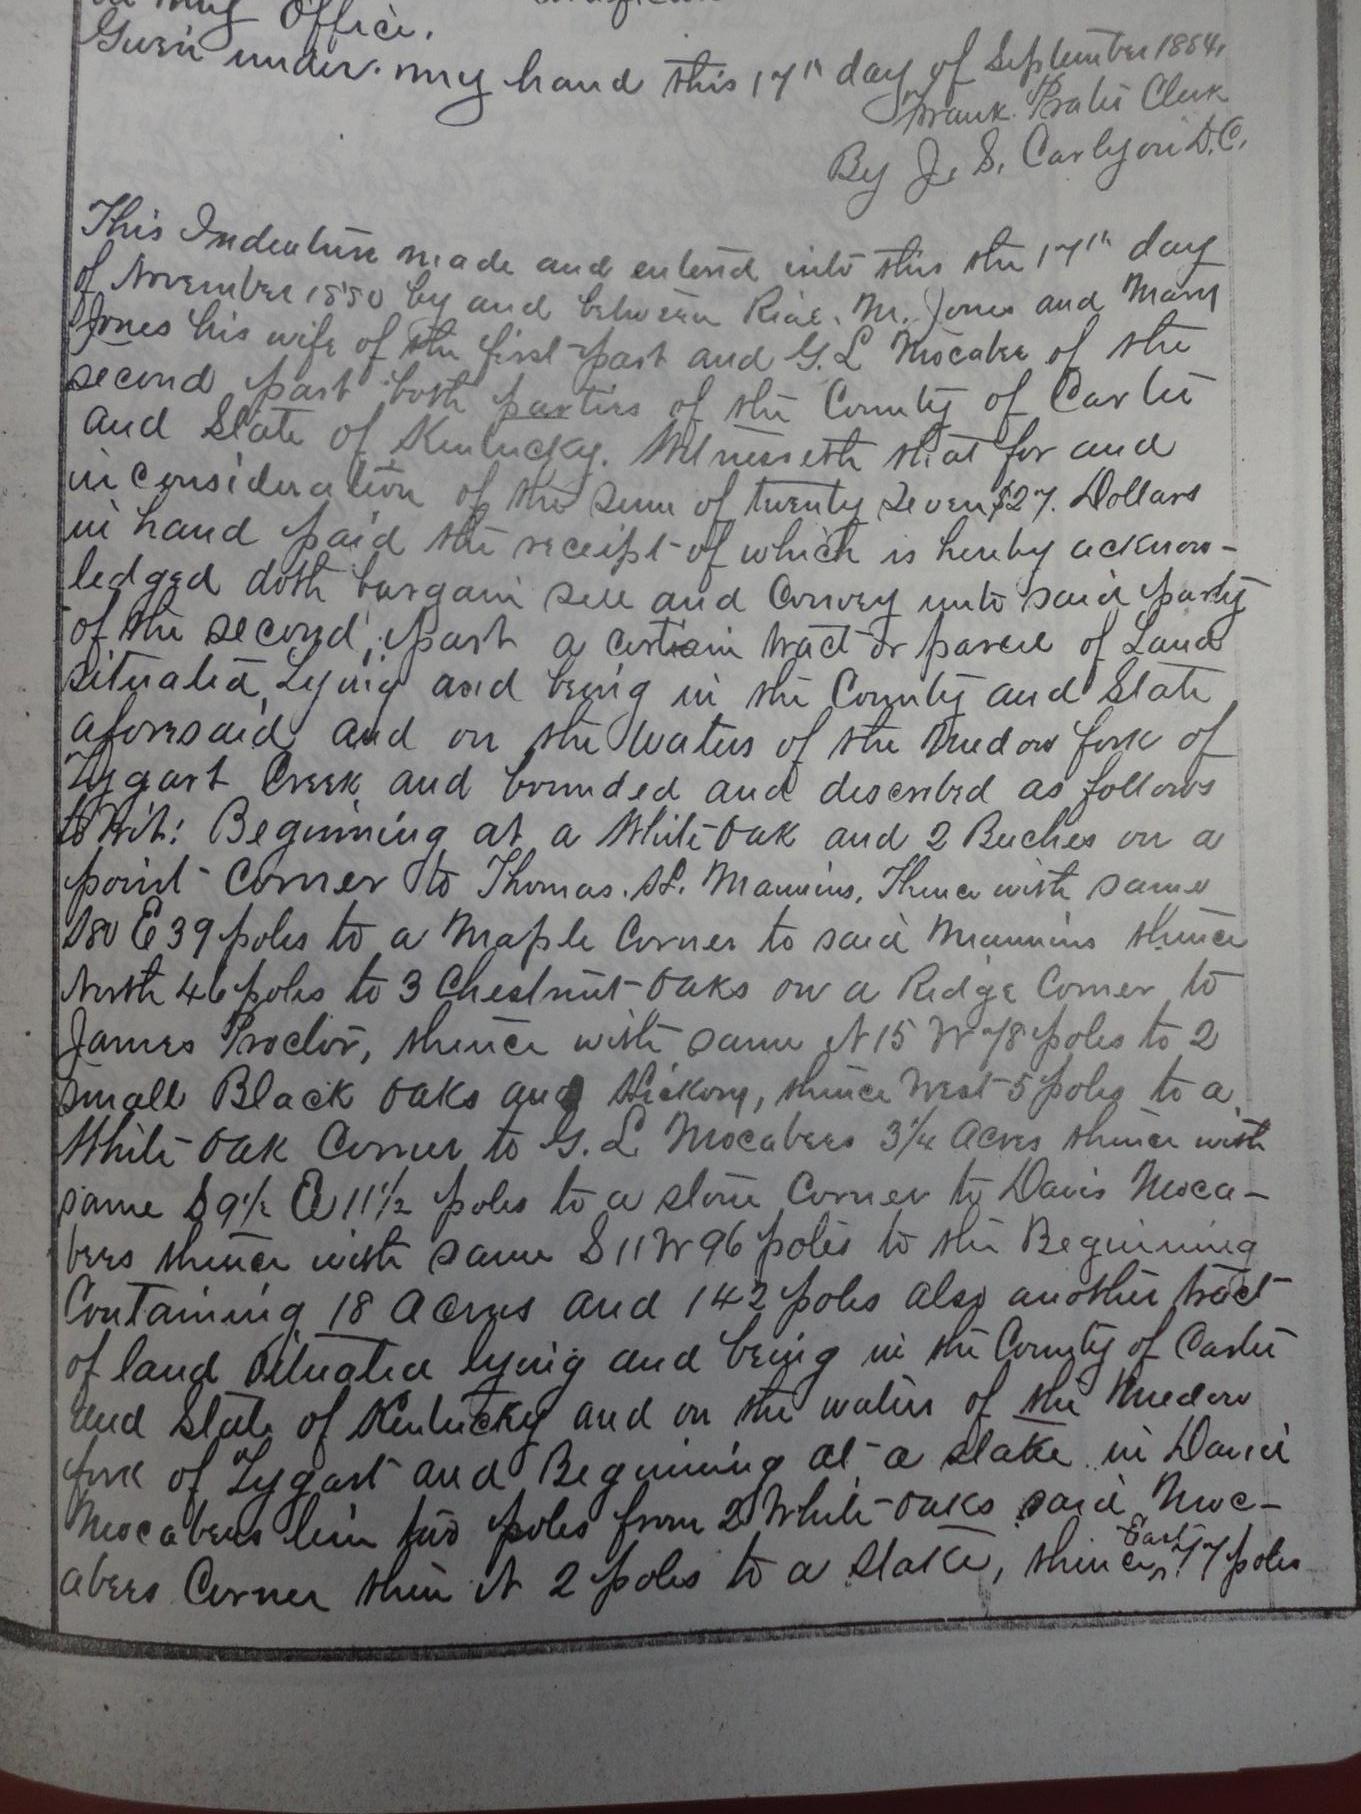 in my Office.
Given under my hand this 17th day of September 1884,
Frank Prater Clerk
By J. S. Carlyon D.C.
This Indenture made and entered into this the 17th day
of November 1880 by and between Rial. M. Jones and Mary
Jones his wife of the first part and G. L Mocabee of the
second part both parties of the County of Carter
and State of Kentucky. Witnesseth that for and
in consideration of the sum of twenty seven $27. Dollars
in hand paid the receipt of which is hereby acknow-
ledged doth bargain sell and Convey unto said party
of the second part a certain tract or parcel of Land
situated, Lying and being in the County and State
aforesaid and on the Waters of the Medow fork of
Tygart Creek and bounded and described as follows
to Wit: Beginning at a White Oak and 2 Beeches on a
point Corner to Thomas. H. Mannins, Thence with same
S80 E 39 poles to a Maple Corner to said Mannins thence
North 46 poles to 3 Chestnut Oaks on a Ridge Corner to
James Proctor, thence with same N 15 W 78 poles to 2
small Black Oaks and Hickory, thence West 5 poles to a
White Oak Corner to G. L Mocabees 3¼ Acres thence with
same S 9½ E 11½ poles to a stone Corner to Davis Moca-
bees thence with same S 11 W 96 poles to the Beginning
Containing 18 Acres and 142 poles also another tract
of land Situated lying and being in the County of Carter
and State of Kentucky and on the waters of the Medow
fork of Tygart and Beginning at a stake in David
Mocabees line two poles from 2 White Oaks said Moc-
abees Corner then N 2 poles to a stake, thence East 77 poles